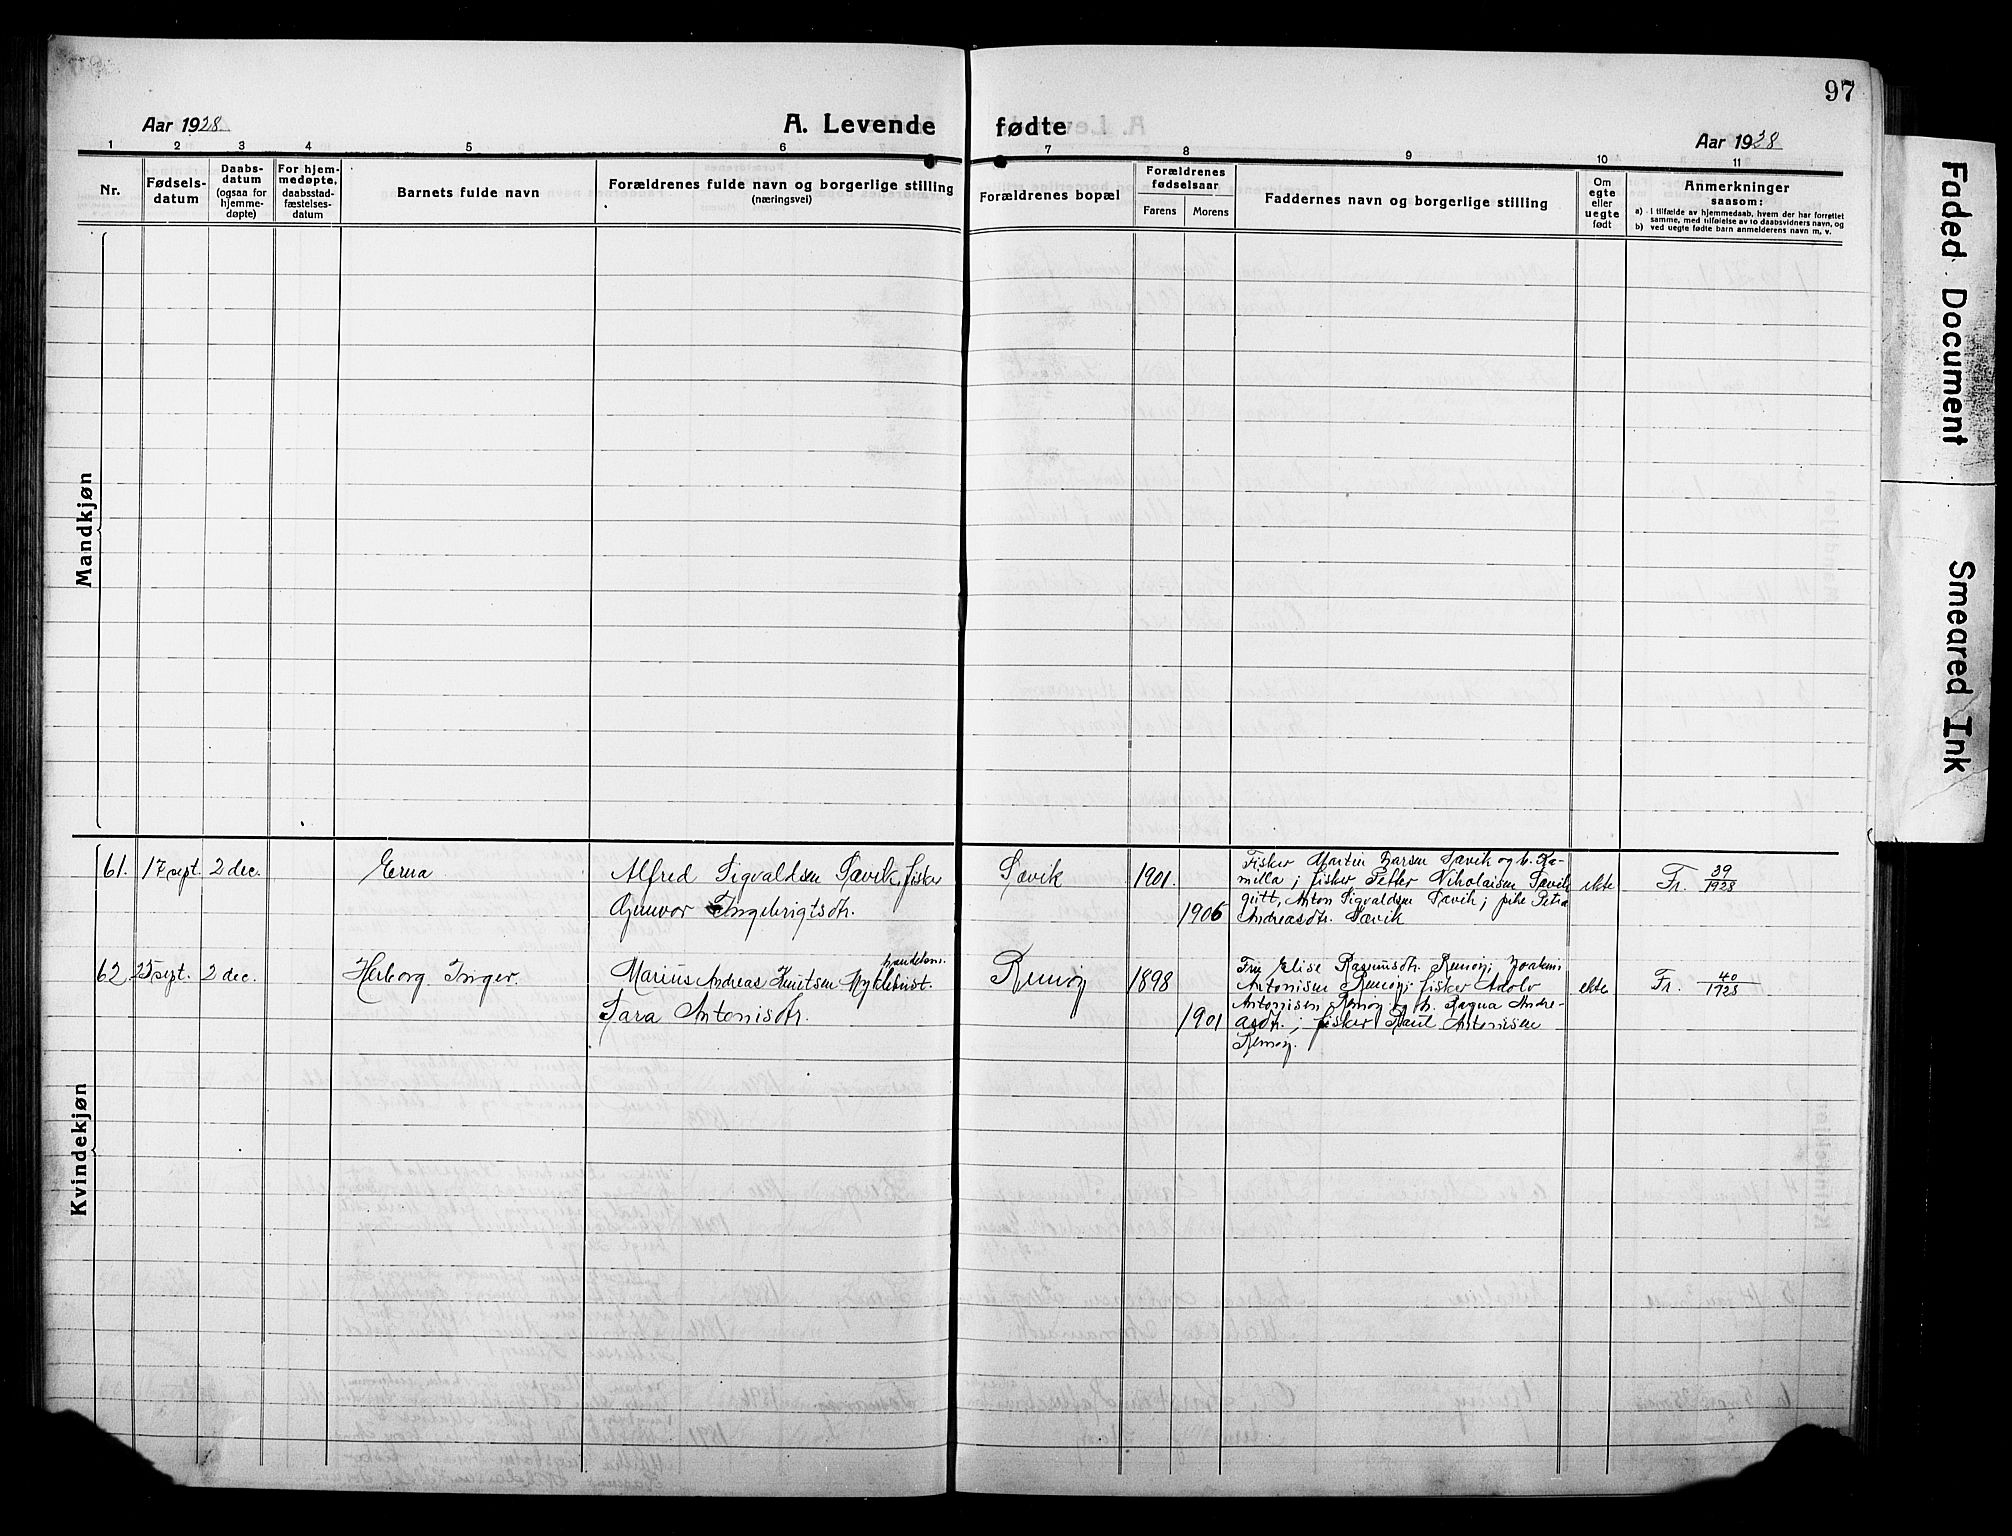 97
Aar 1928
A. Levende fødte
Aar 1928
1 2 3 4 5 6 7 8 9 10 11
Nr.
Fødselsdatum
Daabsdatum (ogsaa for hjemmedøpte)
For hjemmedøpte, daabsstadfæstelsesdatum
Barnets fulde navn
Forældrenes fulde navn og borgerlige stilling (næringsvei)
Forældrenes bopæl
Forældrenes fødselsaar
Farens Morens
Faddernes navn og borgerlige stilling
Om egte eller uegte født
Anmerkninger saasom:
a) I tilfælde av hjemmedaab, hvem der har forrettet samme, med tilføielse av to daabsvidners navn, og
b) ved uegte fødte barn anmelderens navn m. v.
Mandkjøn
Kvindekjøn
61. 17 sept. 2 dec. Erna Alfred Sigvaldsen Sævik, fisker Sævik 1901.
Gunvor Ingebrigtsdtr. 1906
Fisker Martin Larsen Sævik og h. Ka-
milla; fisker Petter Nikolaisen Sævik
gutt, Anton Sigvaldsen Sævik; pike Petra
Andreasdtr. Sævik
ekte Fr. 39/1928
62 25 sept. 2 dec. Herborg Inger. Marius Andreas Knutsen Myklebust. handelsm. Remøy 1898
Sara Antonisdtr. 1901
Fru Elise Rasmusdtr. Remøy; Joakim
Antonisen Remøy; fisker Adolv
Antonisen Remøy og h. Ragna Andre-
asdtr.; fisker Paul Antonisen
Remøy.
ekte Fr. 40/1928
Faded Document
Smeared Ink